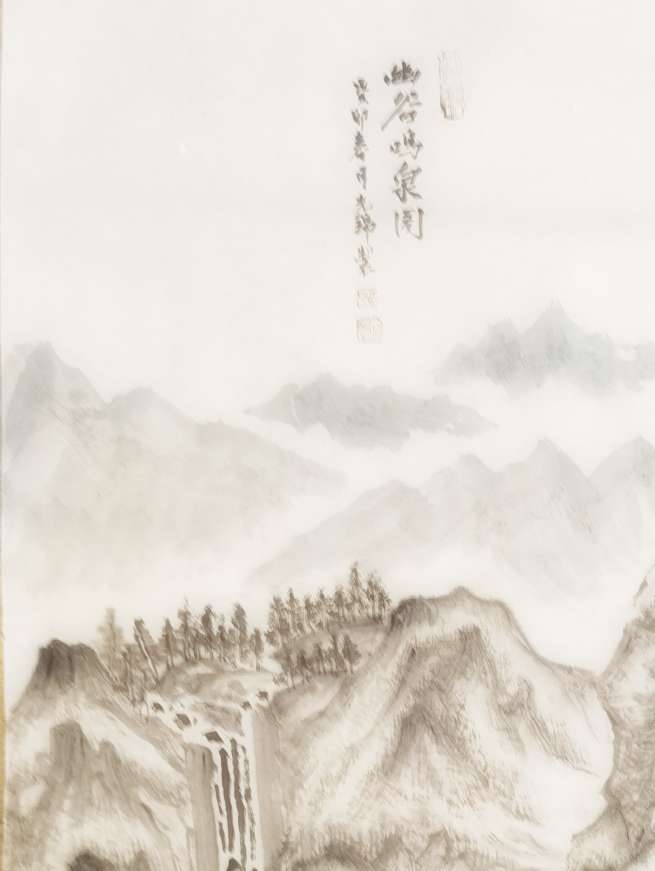 幽谷鳴泉図
癸卯春月光錦製